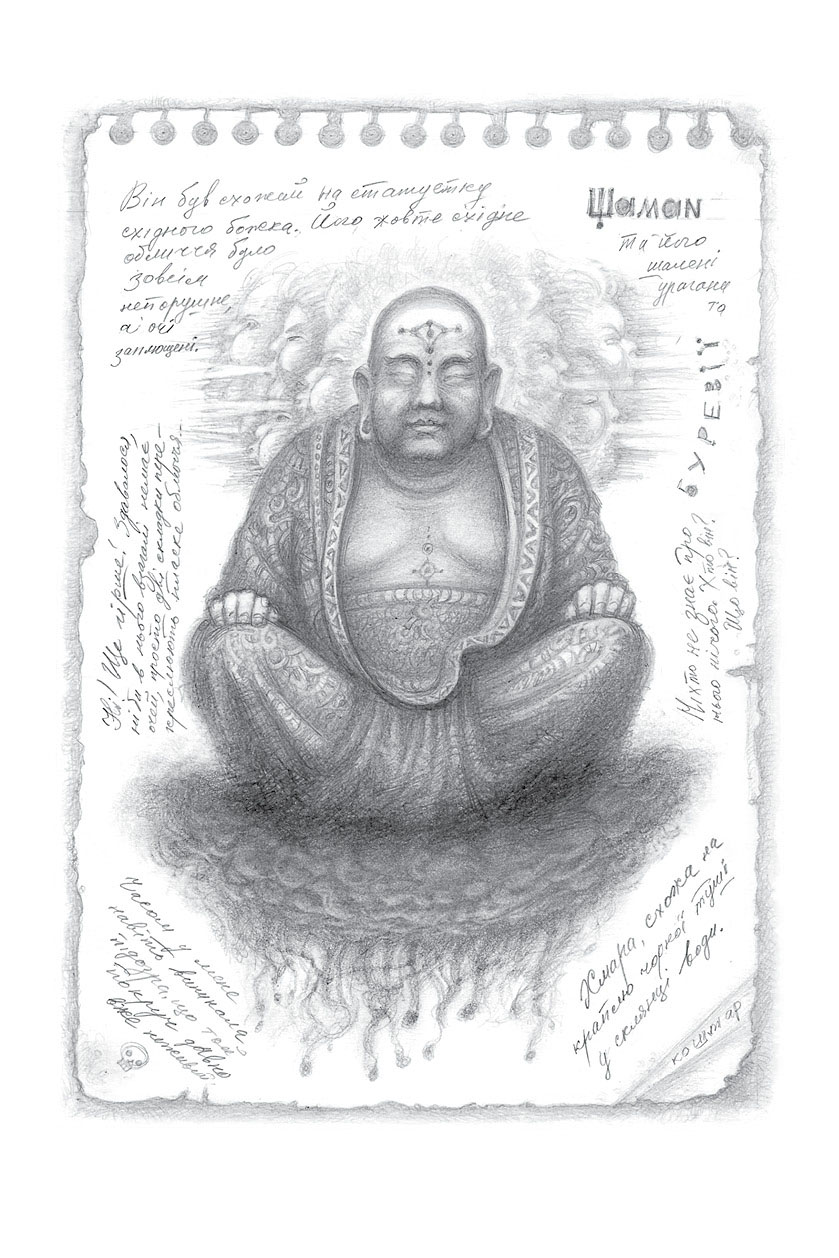 Він був схожий на статуетку
східного божка. Його жовте східне
обличчя було
зовсім
непорушне,
а очі
заплющені.
Шаман
та його
шалені
урагани
та
буревії
Ні! Ще гірше! Здавалося,
ніби в нього взагалі немає
очей, просто дві складки пере-
креслюють пласке обличчя...
Ніхто не знає про
нього нічого. Хто він?
Що він?
Часом у мене
навіть виникала
підозра, що той
покруч давно
вже неживий.
Хмара, схожа на
краплю чорної туші
у склянці води.
кошмар